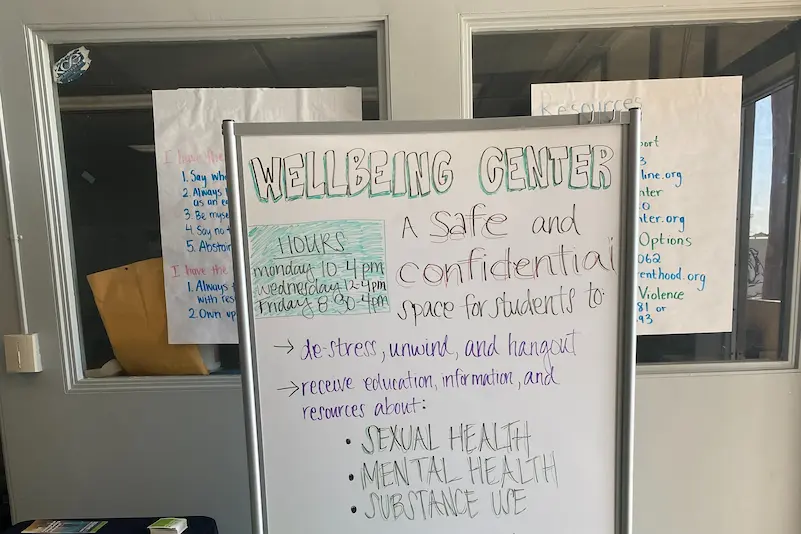 WELLBEING CENTER
HOURS
monday 10-4pm
wednesday 12-4pm
friday 8:30-4pm
A safe and
confidential
space for students to:
→ de-stress, unwind, and hangout
→ receive education, information, and
resources about:
• SEXUAL HEALTH
• MENTAL HEALTH
• SUBSTANCE USE
I have the
1. Say
2. Always
as an
3. Be
4. Say no
5.
I have the
1. Always
with
2. Own up
Resources
line.org
Options
062
enthood.org
Violence
81 or
93